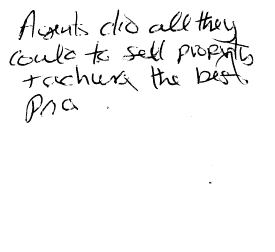 Agents did all they
could to sell property
+ achieve the best
price.